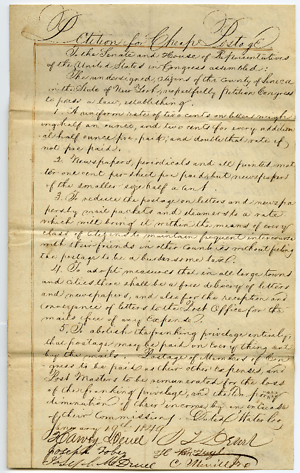 Petition for Cheap Postage
To the Senate and House of Representatives
of the United States in Congress assembled.
The undersigned, citizens of the County of Seneca
in the State of New York, respectfully petition Congress
to pass a law, establishing
1. A uniform rate of two cents on letters weigh-
ing half an ounce, and two cents for every addition-
al half ounce pre paid, and double that rate if
not pre paid.
2. Newspapers, periodicals and all printed mat-
ter one cent per sheet pre paid, but newspapers
of the smaller size half a cent
3. To reduce the postage on letters and newspa-
pers by mail packets and steamers to a rate
which will bring it within the means of every
class of citizens to maintain frequent intercourse
with their friends in other countries without feeling
the postage to be a burdensome tax.
4. To adopt measures that in all large towns
and cities there shall be a free delivery of letters
and newspapers, and also for the reception and
conveyance of letters to the Post Office for the
mails free of any expense.
5. To abolish the franking privilege entirely,
that postage may be paid on every thing sent
by the mails. Postage of Members of Con-
gress to be paid as their other expenses, and
Post Masters to be remunerated for the loss
of their franking privilege, and the temporary
diminution of their income by an increase
of their Commissions. Dated Waterloo
January 19th 1849
Joseph